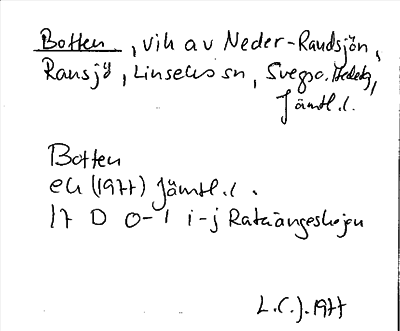 Botten, vik av Neder-Randsjön,
Ransjö, Linsells sn, Svegs
Jämtl. l.
Botten
ek (1977) Jämtl. l.
17 D 0-1 i-j Rätängeshojen
L.C.J. 1977